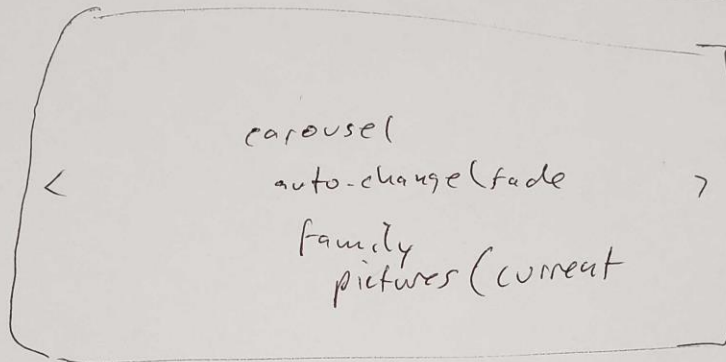 carousel
< auto-change(fade >
family
pictures (current